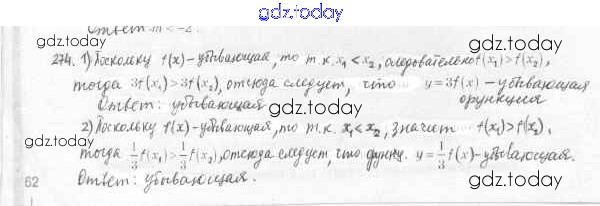 gdz.today
Ответ: m < -2.
gdz.today
274. 1) Поскольку f(x) – убывающая, то т.к. x₁ < x₂, следовательно f(x₁) > f(x₂),
тогда 3f(x₁) > 3f(x₂), отсюда следует, что y = 3f(x) – убывающая
функция
Ответ: убывающая
gdz.today
gdz.today
2) Поскольку f(x) – убывающая, то т.к. x₁ < x₂, значит f(x₁) > f(x₂),
gdz.today
тогда 1/3 f(x₁) > 1/3 f(x₂), отсюда следует, что функц. y = 1/3 f(x) – убывающая.
62 Ответ: убывающая.
gdz.today
gdz.today